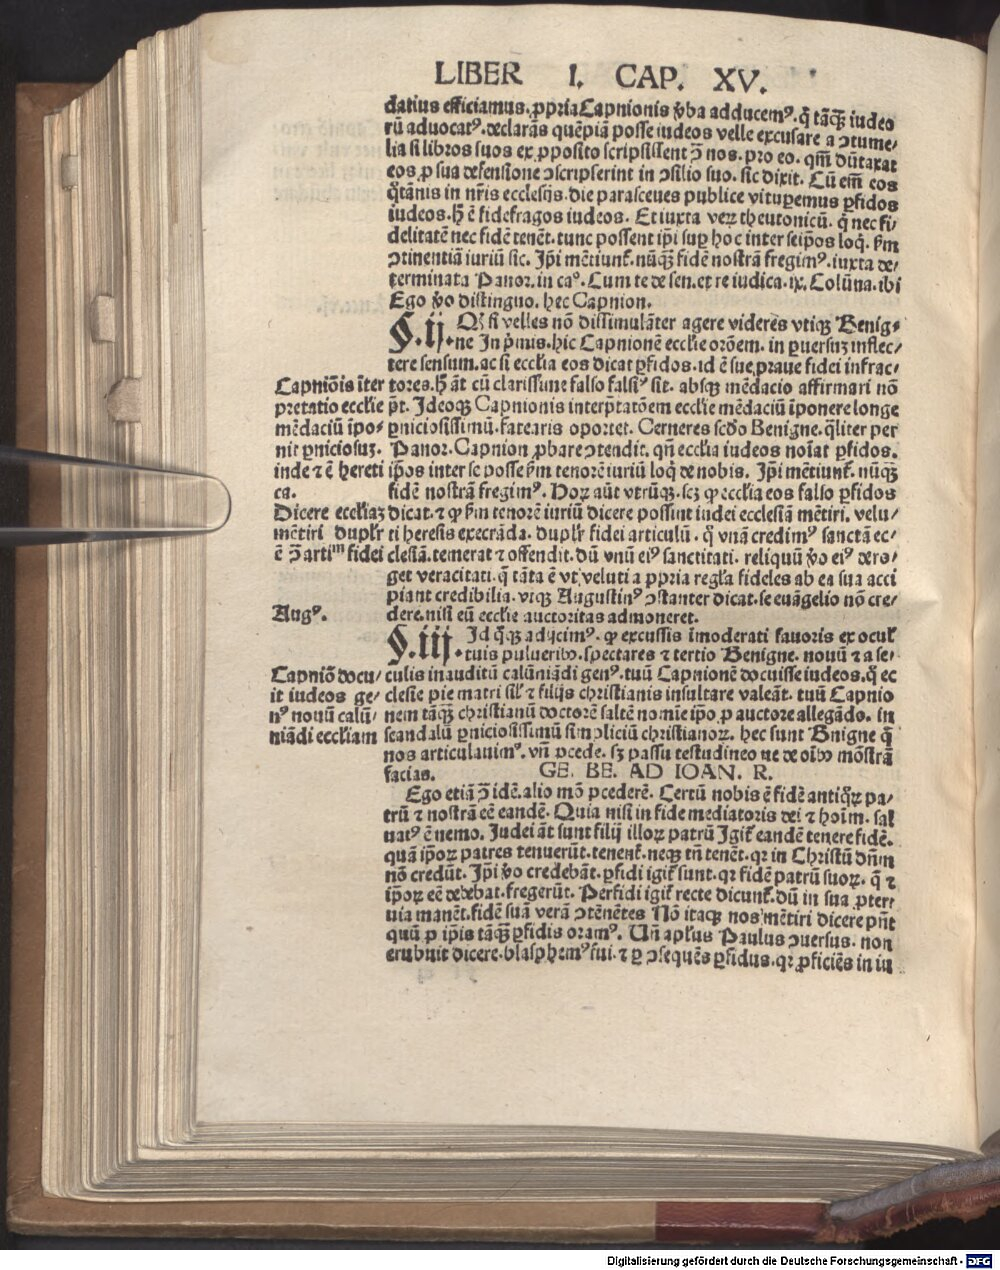 LIBER I. CAP. XV.
datius efficiamus. ꝓpria Capnionis ꝟba adducemꝰ. q̄ tāqꝫ iudeo
rū aduocatꝰ. declarās quēpiā posse iudeos velle excusare a ɔtume/
lia si libros suos ex ꝓposito scripsissent ɔ̄ nos. pro eo. qm̄ dūtaxat
eos ꝓ sua defensione ɔscripserint in ɔsilio suo. sic dixit. Cū em̄ eos
q̊tānis in nr̄is ecclesijs. die parasceues publice vituꝑemus ꝑfidos
iudeos. h̄ ē fidefragos iudeos. Et iuxta veꝝ theutonicū. q̄ nec fi/
delitatē nec fidē tenēt. tunc possent ip̄i suꝑ hoc inter seip̄os loq̄. ẜm
ɔtinentiā iuriū sic. Ip̄i mētiunt᷑. nūq̄ꝫ fidē nostrā fregimꝰ. iuxta de/
terminata Panor. in caᵒ. Cum te de sen. et re iudica. ix. Colūna. ibi
Ego ꝟo distinguo. hec Capnion.
§.ij. Qꝭ si velles nō dissimulāter agere viderēs vtiqꝫ Benig/
ne In pͥmis. hic Capnionē ecclie orōem. in ꝑuersuꝫ inflec/
tere sensum. ac si ecclia eos dicat ꝑfidos. id ē sue praue fidei infrac/
Capniōis īter tores. h̄ āt cū clarissime falso falsiꝰ sit. absqꝫ mēdacio affirmari nō
pretatio ecclie p̄t. Ideoqꝫ Capnionis interp̄tatōem ecclie mēdaciū īponere longe
mēdaciū īpo/ ꝑniciosissimū. fatearis oportet. Cerneres scd̄o Benigne. q̄liter per
nit ꝑniciosuꝫ. Panor. Capnion ꝓbare ɔtendit. qn̄ ecclia iudeos noīat ꝑfidos.
inde ⁊ ē hereti ip̄os inter se posse ẜm tenorē iuriū loq̄ de nobis. Ip̄i mētiunt᷑. nūq̄ꝫ
ca. fidē nostrā fregimꝰ. Hoꝝ aūt vtrūqꝫ. scꝫ ꝙ ecclia eos falso ꝑfidos
Dicere eccliaꝫ dicat. ⁊ ꝙ ẜm tenorē iuriū dicere possint iudei ecclesiā mētiri. velu/
mētiri dupl̓r ti heresis execrāda. dupl̓r fidei articulū. q̄ vnā credimꝰ sanctā ec/
ē ɔ̄ artiᵐ fidei clesiā. temerat ⁊ offendit. dū vnū eiꝰ sanctitati. reliquū ꝟo eiꝰ dero/
get veracitati. q̄ tāta ē vt veluti a ꝓpria regl̓a fideles ab ea sua acci
piant credibilia. vtiqꝫ Augustinꝰ ɔstanter dicat. se euāgelio nō cre/
Augꝰ. dere. nisi eū ecclie auctoritas admoneret.
§.iij. Id q̊qꝫ adijcimꝰ. ꝙ excussis īmoderati fauoris ex ocul̓
tuis pulueribꝰ. spectares ⁊ tertio Benigne. nouū ⁊ a se/
Capniō docu/ culis inauditū calūniādi genꝰ. tuū Capnionē docuisse iudeos. q̄ ec
it iudeos ge/ clesie pie matri sil̓ ⁊ filijs christianis insultare valeāt. tuū Capnio
nꝰ nouū calū/ nem tāqꝫ christianū doctorē saltē nomīe ip̄o ꝓ auctore allegādo. in
niādi eccliam scandalū ꝑniciosissimū simpliciū christianoꝝ. hec sunt Bnigne q̄
nos articulauimꝰ. vn̄ ꝓcede. sꝫ passu testudineo ne de oībꝰ mōstrā
facias. GE. BE. AD IOAN. R.
Ego etiā ɔ̄ idē. alio mō ꝓcederē. Certū nobis ē fidē antiq̊ꝝ pa/
trū ⁊ nostrā eē eandē. Quia nisi in fide mediatoris dei ⁊ hoīm. sal
uatꝰ ē nemo. Iudei āt sunt filij illoꝝ patrū Igit᷑ eandē tenere fidē.
quā ip̄oꝝ patres tenuerūt. tenent᷑. neqꝫ tn̄ tenēt. qꝛ in Christū dn̄m
nō credūt. Ip̄i ꝟo credebāt. ꝑfidi igit᷑ sunt. qꝛ fidē patrū suoꝝ. q̄ ⁊
ip̄oꝝ eē debebat. fregerūt. Perfidi igit᷑ recte dicunt᷑. dū in sua ꝓter
uia manēt. fidē suā verā ɔtēnētes Nō itaqꝫ nos mētiri dicere pn̄t
quū ꝓ ip̄is tāqꝫ ꝑfidis oramꝰ. Un̄ apl̓us Paulus ɔuersus. non
erubuit dicere. blasphemꝰ fui. ⁊ ꝑ ɔsequēs ꝑfidus. qꝛ ꝓficiēs in iu
Digitalisierung gefördert durch die Deutsche Forschungsgemeinschaft - DFG